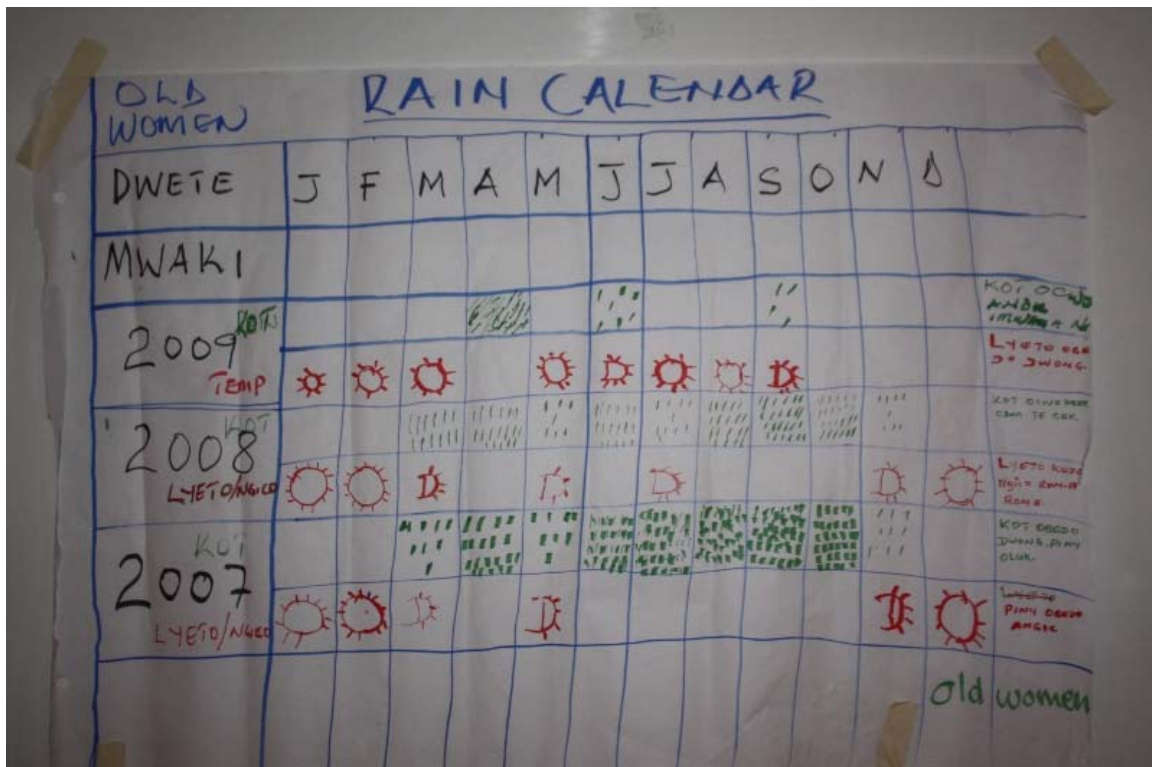 OLD
WOMEN
RAIN CALENDAR
DWETE J F M A M J J A S O N D
MWAKI
2009 KOTH
TEMP
KOT
LYETO
DWONG.
2008 KOT
LYETO/NGICO
KOT
LYETO
2007 KOT
LYETO/NGICO
KOT OBEDO
DWONG. PINY
PINY OBEDO
ANGIC
Old women